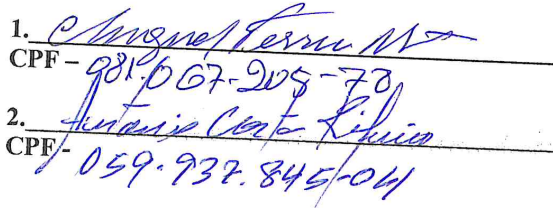 1. Miguel Ferr
CPF - 081.067-205-78
2. Antonio Costa Ribeiro
CPF - 059.937.845-04